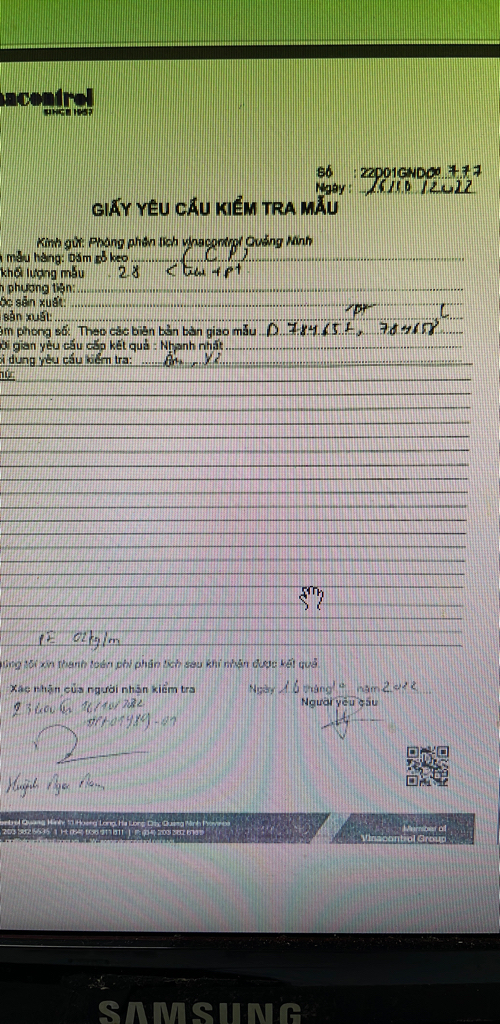 nacontrol
SINCE 1957
Số : 22D01GNDO0 777
Ngày : 16/10/2022
GIẤY YÊU CẦU KIỂM TRA MẪU
Kính gửi: Phòng phân tích vinacontrol Quảng Ninh
mẫu hàng: Dăm gỗ keo
khối lượng mẫu 28 < lưu + pt
phương tiện:
ốc sản xuất:
sản xuất: pt L
êm phong số: Theo các biên bản bàn giao mẫu D 784657, 784658
ời gian yêu cầu cấp kết quả : Nhanh nhất
i dung yêu cầu kiểm tra: Ẩm
PE 02kg/m
úng tôi xin thanh toán phí phân tích sau khi nhận được kết quả
Xác nhận của người nhận kiểm tra
Ngày 16 tháng 10 năm 2022
Người yêu cầu
16/10/2022
01989-01
Huỳnh Ngọc Nam
ontrol Quang Ninh: 11 Hoang Long, Ha Long City, Quang Ninh Province
Member of
Vinacontrol Group
SAMSUNG